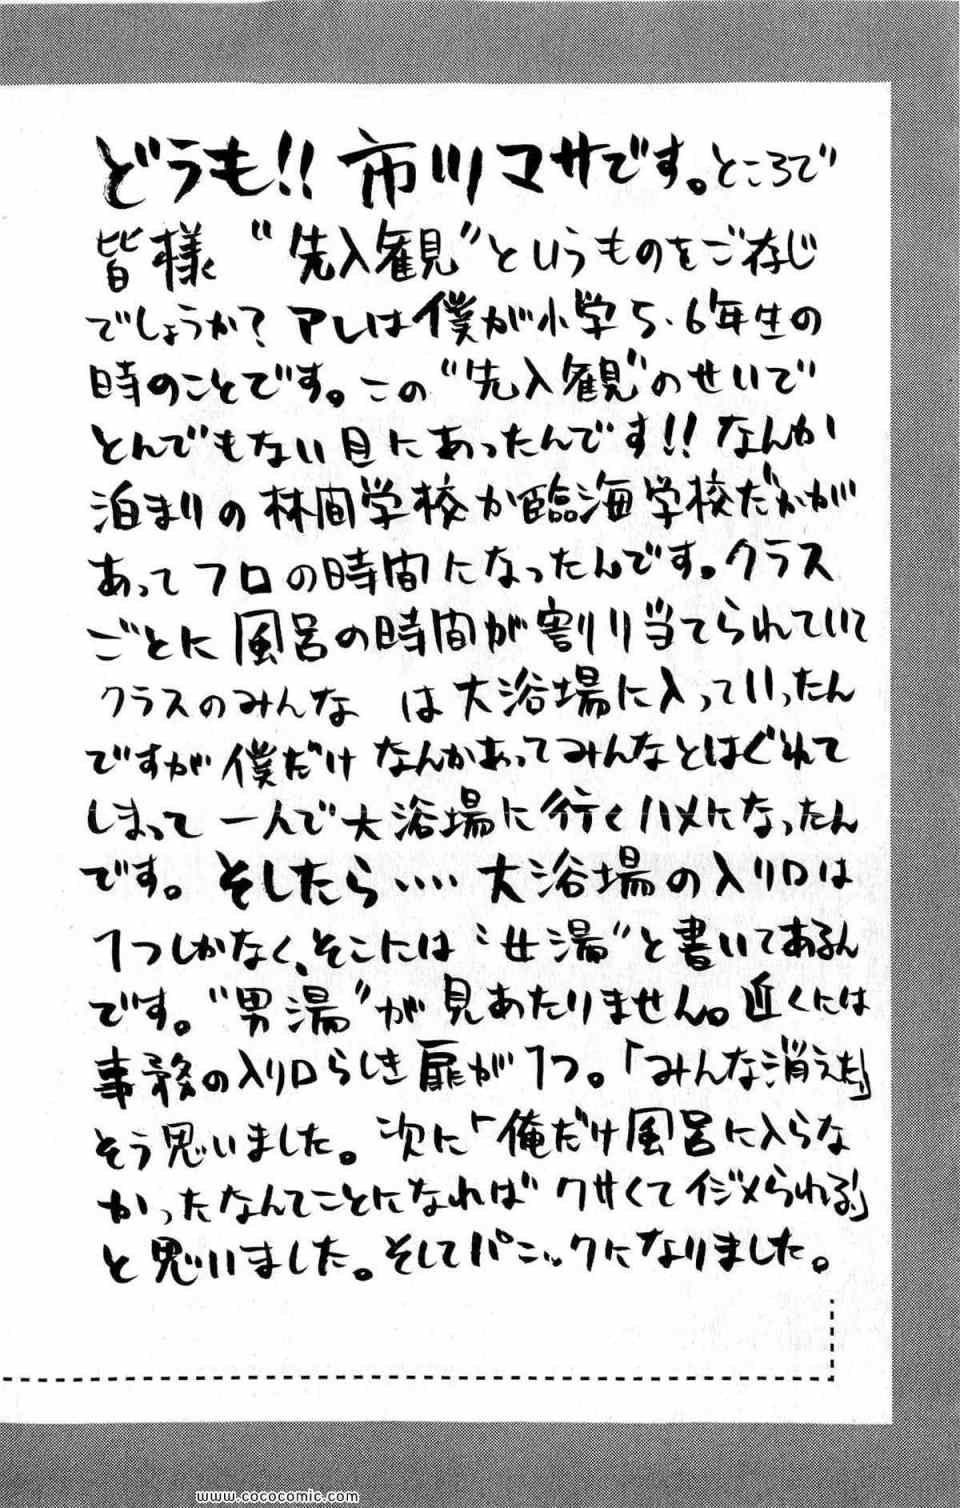 どうも!! 市ツマサです。ところで
皆様 “先入観”というものをご存じ
でしょうか? アレは僕が小学5.6年生の
時のことです。この“先入観”のせいで
とんでもない目にあったんです!! なんか
泊まりの林間学校か臨海学校だかが
あってフロの時間になったんです。クラス
ごとに風呂の時間が割り当てられていて
クラスのみんな は大浴場に入っていったん
ですが僕だけなんかあってみんなとはぐれて
しまって一人で大浴場に行くハメになったん
です。そしたら‥‥大浴場の入り口は
1つしかなく、そこには“女湯”と書いてあるん
です。“男湯”が見あたりません。近くには
事務の入り口らしき扉が1つ。「みんな消えた」
そう思いました。次に「俺だけ風呂に入らな
かったなんてことになればクサくてイジメられる」
と思いました。そしてパニックになりました。
www.cococomic.com